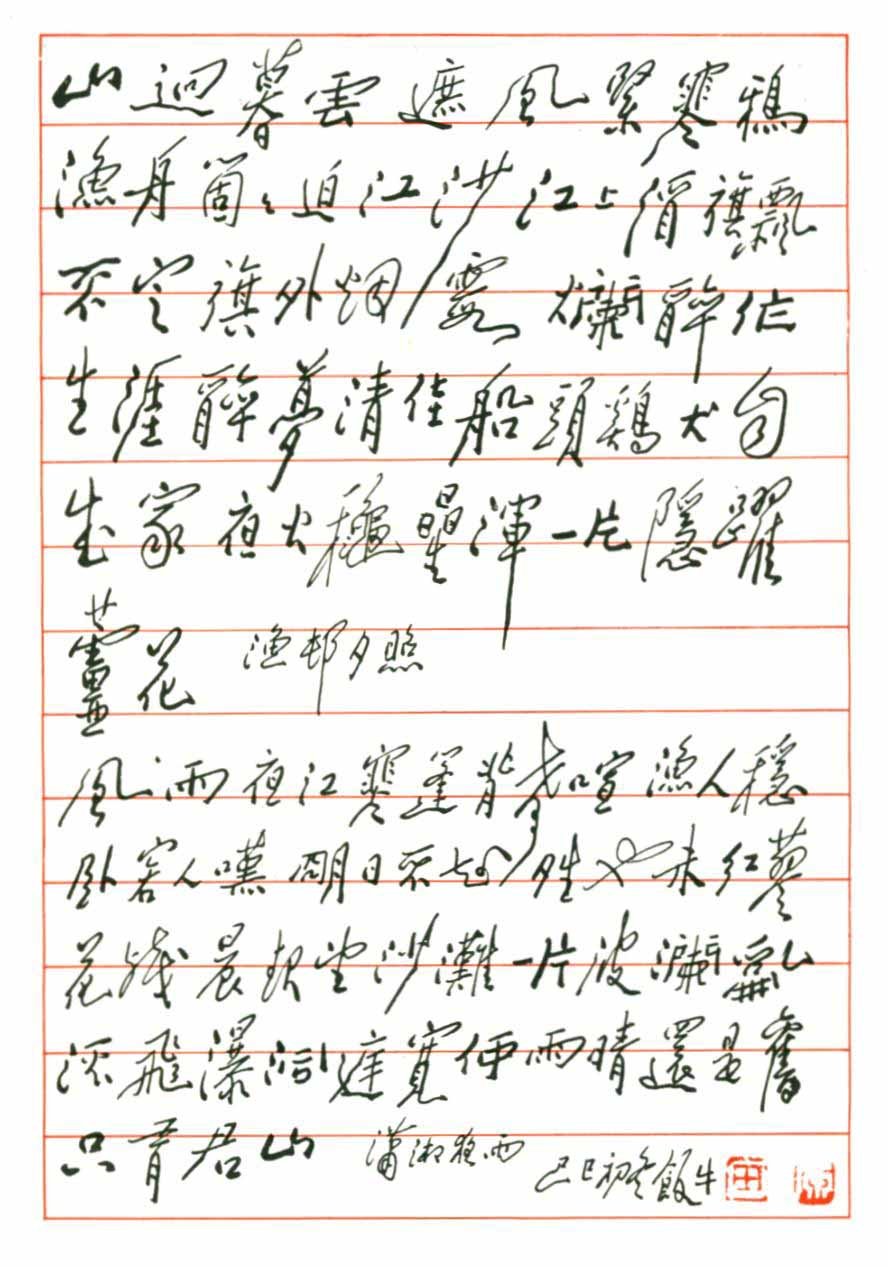 山迥暮雲遮風緊寒鴉
漁舟箇々泊江沙江上酒旗飄
不定旗外烟霞爛醉作
生涯醉夢清佳船頭鷄犬自
成家夜火穐星渾一片隱躍
蘆花 漁邨夕照
風雨夜江寒篷背聲喧漁人穩
卧客人嘆明日不知晴也未紅蓼
花殘晨起望沙灘一片波瀾亂
流飛瀑洞庭寬雨晴還是舊
只有君山 瀟湘夜雨 己巳初冬飯牛